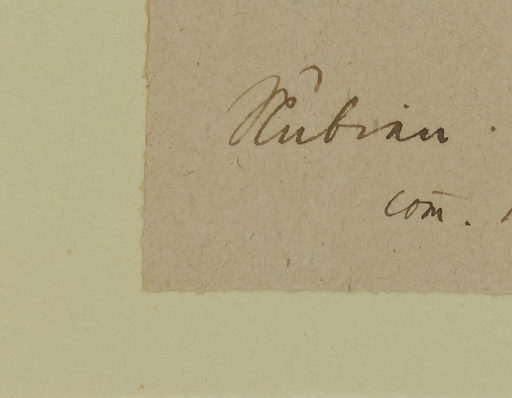 Nubian .
com̄.